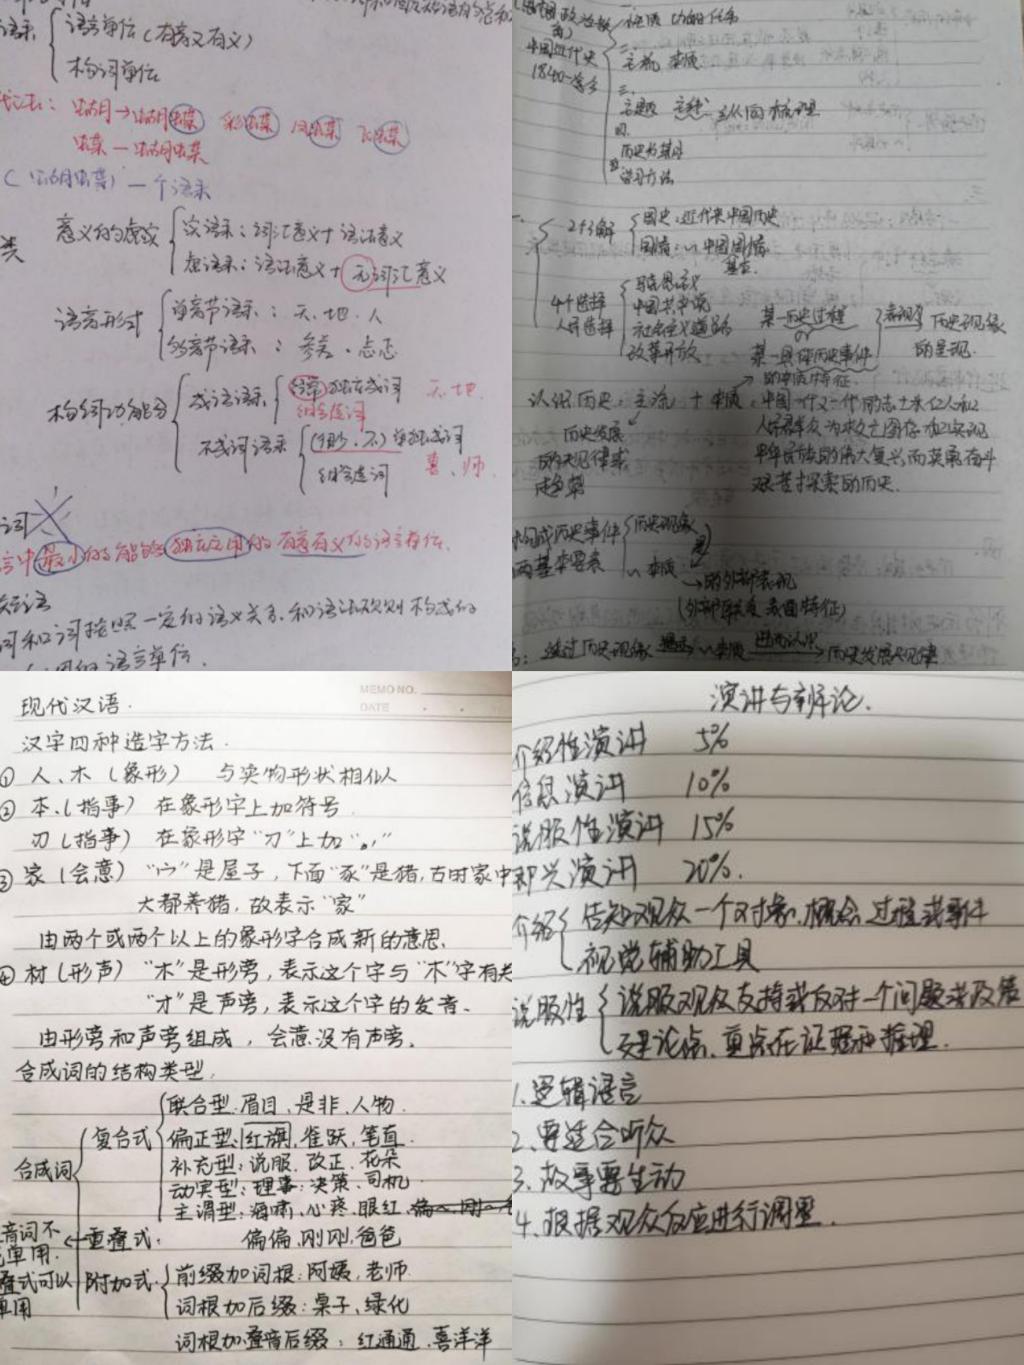 语言单位（有音又有义）
构词单位
蝴→蝴蝶 彩蝶 凤蝶 飞蝶
蝶—蝴蝶
（蝴蝶）一个语素
类
意义的虚实
实语素：词汇意义+语法意义
虚语素：语法意义+无词汇意义
语音形式
单音节语素：天、地、人
多音节语素：
构词功能分
成词语素
独立成词
组合造词
天、地
不成词语素
单独成词
组合造词
师
词
最小的能够独立运用的有音有义的语言单位.
短语
词和词按照一定的语义关系和语法规则构成的
的语言单位.
中国近代史
1840-
主流 本质
主题 主线
学习方法
2个了解
国史、近代来中国历史
国情：中国国情
4个选择
人民选择
马克思主义
中国共产党
社会主义道路
改革开放
某一历史过程
or
某一具体历史事件
的本质特征.
表现为
历史现象
的呈现.
认识历史：主流 + 本质
历史发展
中国一代又一代
人民群众为救亡图存和实现
中华民族的伟大复兴而英勇奋斗
艰苦探索的历史.
构成历史事件
两基本要素
历史现象
本质
→的外部表现
（外部联系、表面特征）
透过历史现象
本质
历史发展规律
现代汉语.
MEMO NO.
DATE
汉字四种造字方法.
① 人、木（象形） 与实物形状相似
② 本（指事） 在象形字上加符号.
刃（指事） 在象形字“刀”上加“。”
③ 家（会意）“宀”是屋子，下面“豕”是猪，古时家中
大都养猪，故表示“家”
由两个或两个以上的象形字合成新的意思.
④ 树（形声）“木”是形旁，表示这个字与“木”字有关
“才”是声旁，表示这个字的发音.
由形旁和声旁组成，会意没有声旁.
合成词的结构类型.
合成词
复合式
联合型.眉目、是非、人物.
偏正型：红旗，雀跃，笔直.
补充型：说服、改正、花朵
动宾型：理事：决策、司机
主谓型：海啸、心疼、眼红
重叠式：
偏偏，刚刚，爸爸
音词不
单用.
叠式可以
单用
附加式
前缀加词根：阿姨，老师.
词根加后缀：桌子，绿化
词根加叠音后缀：红通通、喜洋洋
演讲与辩论.
介绍性演讲 5%
信息演讲 10%
说服性演讲 15%
即兴演讲 20%.
介绍
告知观众一个对象、概念、过程或事件
视觉辅助工具
说服性
说服观众支持或反对一个问题或政策
论点、重点在证据和推理.
1.逻辑语言
2.要适合听众
3.故事要生动
4.根据观众反应进行调整.